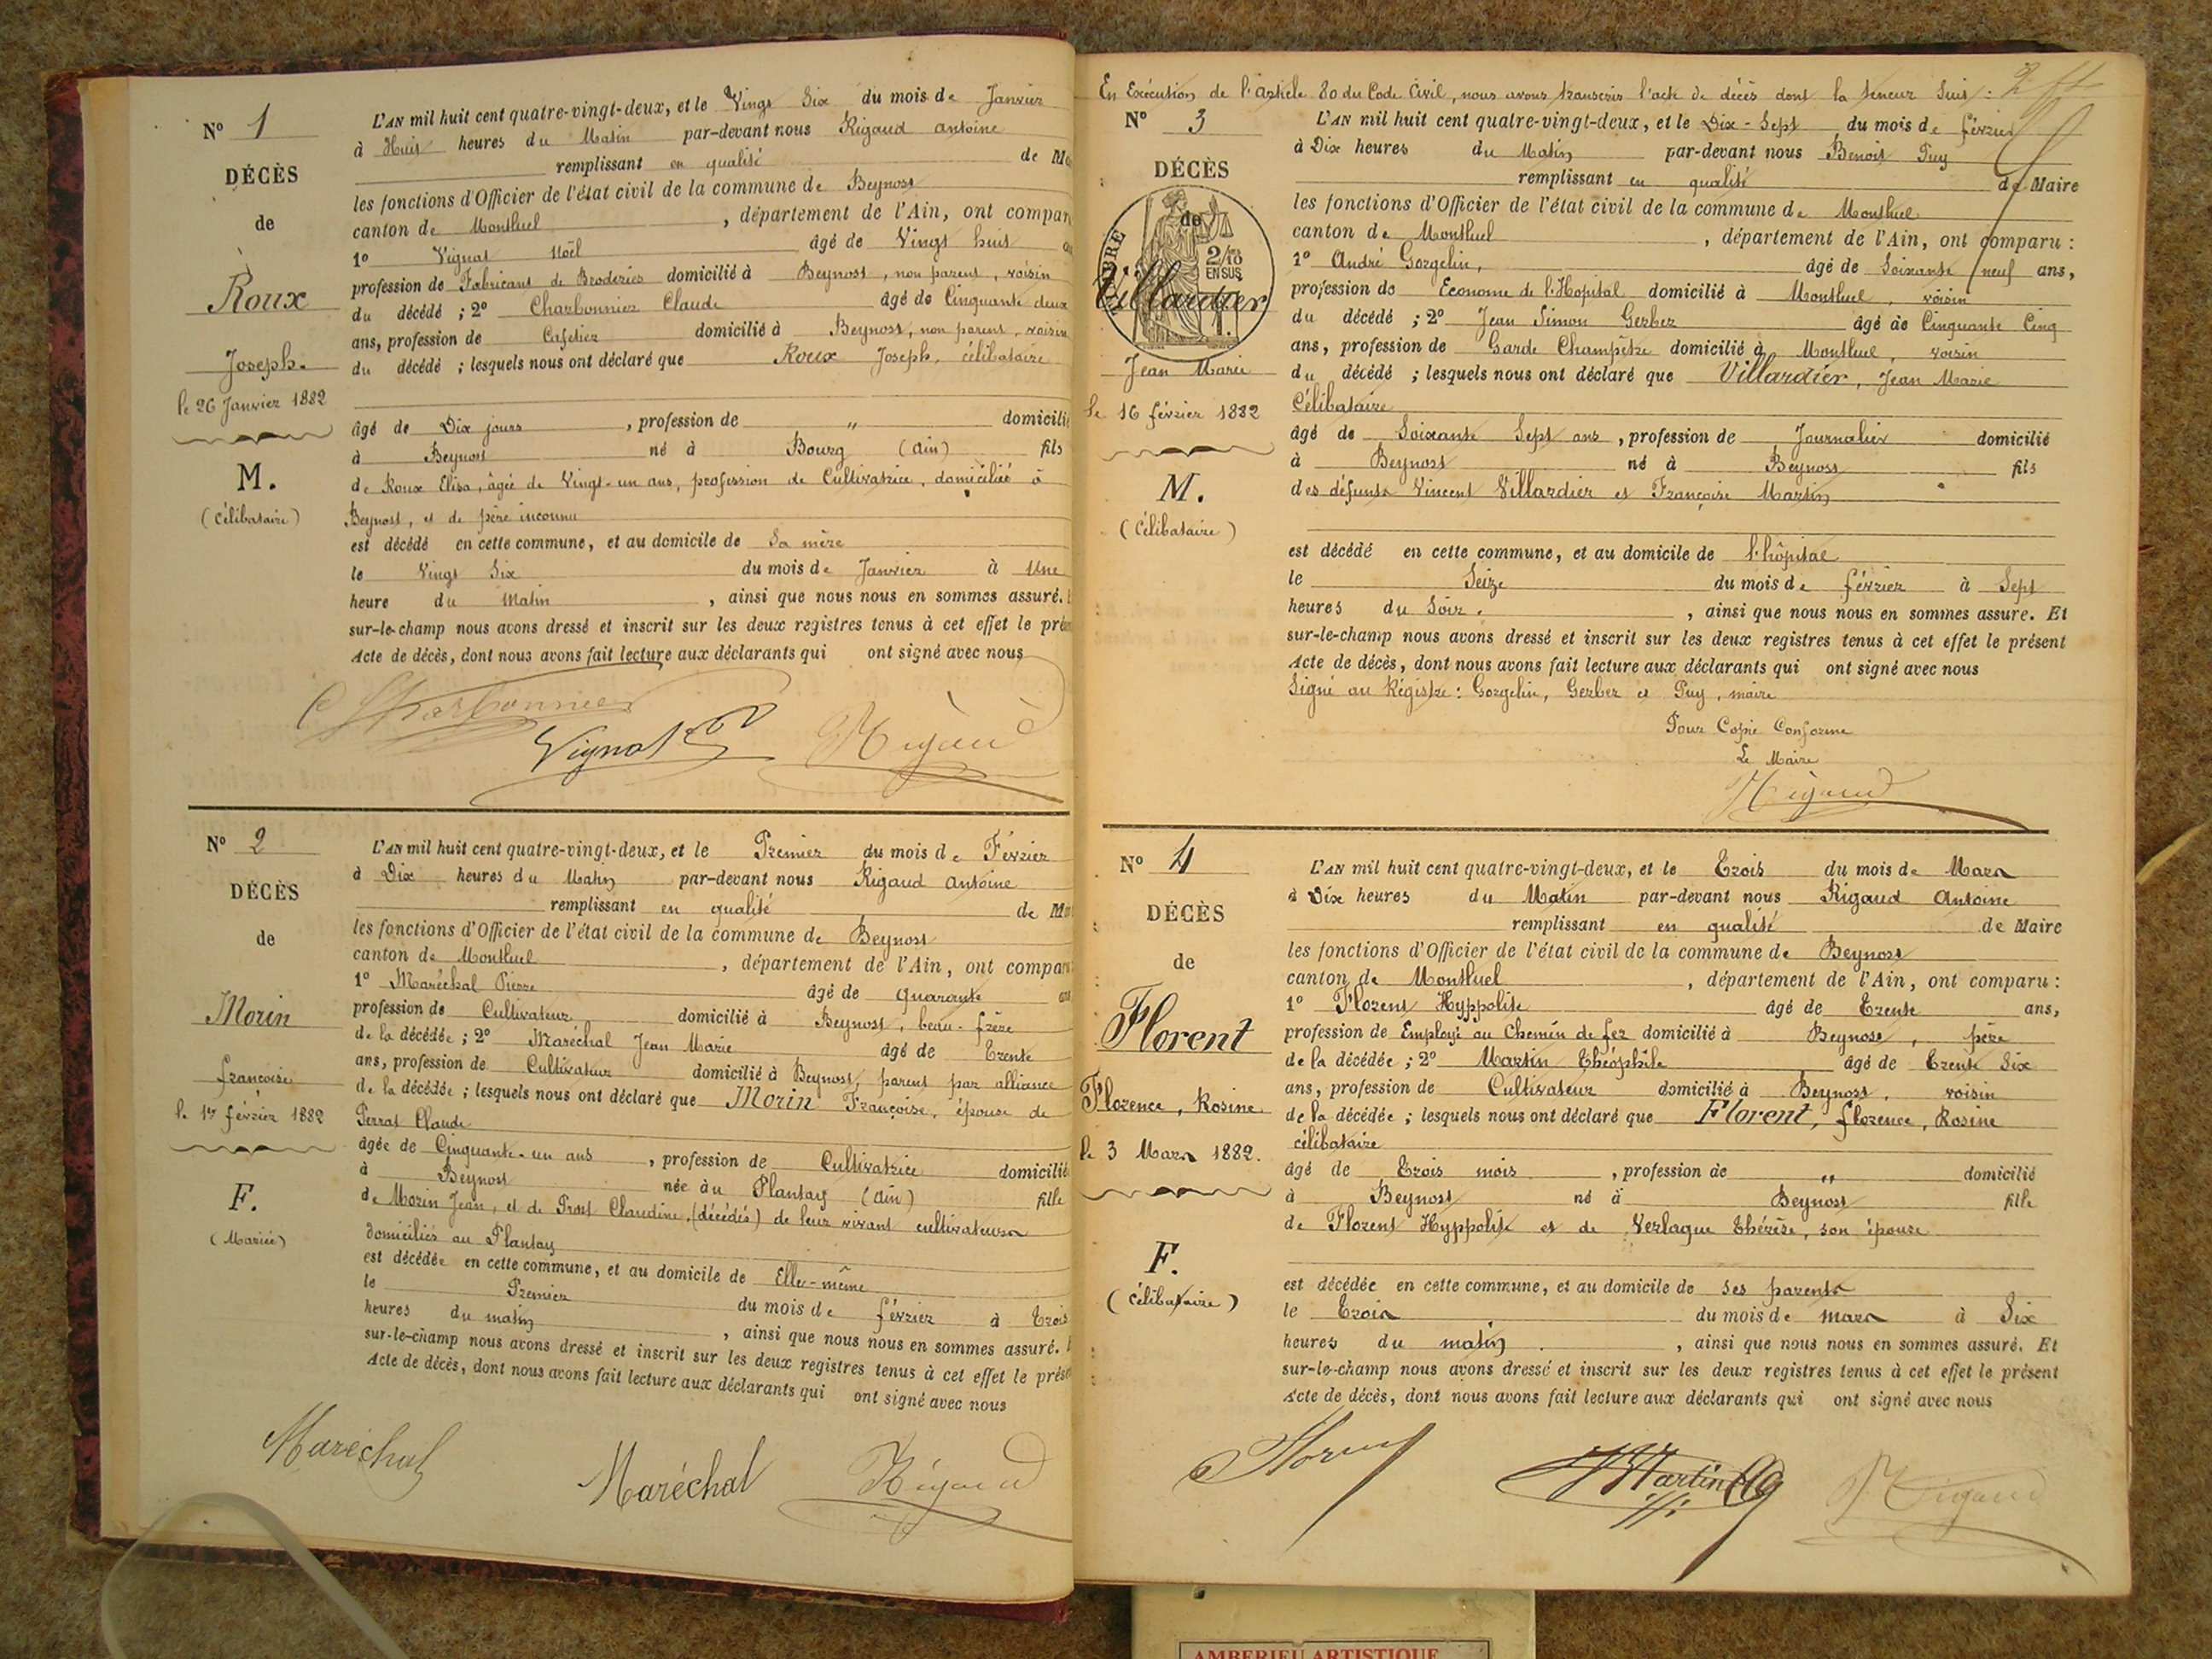 N° 1
DÉCÈS
de
Roux
Joseph.
le 26 Janvier 1882
M.
(Célibataire)
L'AN mil huit cent quatre-vingt-deux, et le Vingt Six du mois de Janvier
à Huit heures du Matin par-devant nous Rigaud Antoine
remplissant en qualité de
les fonctions d'Officier de l'état civil de la commune de Beynost
canton de Montluel, département de l'Ain, ont
1° Vignat Noël âgé de Vingt huit
profession de Fabricant de Broderies domicilié à Beynost, non parent, voisin
du décédé ; 2° Charbonnier Claude âgé de Cinquante deux
ans, profession de Cafetier domicilié à Beynost, non parent, voisin
du décédé ; lesquels nous ont déclaré que Roux Joseph, célibataire
âgé de Dix jours, profession de " domicilié
à Beynost né à Bourg (Ain) fils
de Roux Elisa, âgée de Vingt-un ans, profession de Cultivatrice, domiciliée à
Beynost, et de père inconnu
est décédé en cette commune, et au domicile de Sa mère
le Vingt Six du mois de Janvier à Une
heure du Matin, ainsi que nous nous en sommes assuré.
sur-le-champ nous avons dressé et inscrit sur les deux registres tenus à cet effet le
Acte de décès, dont nous avons fait lecture aux déclarants qui ont signé avec nous
Charbonnier
Vignat
Rigaud
N° 2
DÉCÈS
de
Morin
françoise
le 1er février 1882
F.
(Mariée)
L'AN mil huit cent quatre-vingt-deux, et le Premier du mois de Février
à Dix heures du Matin par-devant nous Rigaud Antoine
remplissant en qualité de
les fonctions d'Officier de l'état civil de la commune de Beynost
canton de Montluel, département de l'Ain, ont
1° Maréchal Pierre âgé de quarante
profession de Cultivateur domicilié à Beynost, beau-frère
de la décédée ; 2° Maréchal Jean Marie âgé de Trente
ans, profession de Cultivateur domicilié à Beynost, parent par alliance
de la décédée ; lesquels nous ont déclaré que Morin Françoise, épouse de
Perrat Claude
âgée de Cinquante-un ans, profession de Cultivatrice domicilié
à Beynost née au Plantay (Ain) fille
de Morin Jean, et de Prost Claudine, (décédés) de leur vivant cultivateurs
domiciliés au Plantay
est décédée en cette commune, et au domicile de Elle-même
le Premier du mois de février à Trois
heures du matin, ainsi que nous nous en sommes assuré.
sur-le-champ nous avons dressé et inscrit sur les deux registres tenus à cet effet le
Acte de décès, dont nous avons fait lecture aux déclarants qui ont signé avec nous
Maréchal
Maréchal
Rigaud
En Exécution de l'article 80 du Code Civil, nous avons transcris l'acte de décès dont la teneur Suit :
N° 3
DÉCÈS
de
2/10
EN SUS
Villardier
Jean Marie
le 16 février 1882
M.
(Célibataire)
L'AN mil huit cent quatre-vingt-deux, et le Dix-Sept du mois de février
à Dix heures du Matin par-devant nous Benoit Puy
remplissant en qualité de Maire
les fonctions d'Officier de l'état civil de la commune de Montluel
canton de Montluel, département de l'Ain, ont comparu :
1° André Gorgelin, âgé de Soixante neuf ans,
profession de Econome de l'Hopital domicilié à Montluel, voisin
du décédé ; 2° Jean Simon Gerber âgé de Cinquante Cinq
ans, profession de Garde Champêtre domicilié à Montluel, voisin
du décédé ; lesquels nous ont déclaré que Villardier, Jean Marie
Célibataire
âgé de Soixante Sept ans, profession de Journalier domicilié
à Beynost né à Beynost fils
des défunts Vincent Villardier et Françoise Martin
est décédé en cette commune, et au domicile de l'hôpital
le Seize du mois de février à Sept
heures du Soir, ainsi que nous nous en sommes assuré. Et
sur-le-champ nous avons dressé et inscrit sur les deux registres tenus à cet effet le présent
Acte de décès, dont nous avons fait lecture aux déclarants qui ont signé avec nous
Signé au Régistre : Gorgelin, Gerber et Puy, maire
Pour Copie Conforme
Le Maire
Rigaud
N° 4
DÉCÈS
de
Florent
Florence, Rosine
le 3 Mars 1882.
F.
(Célibataire)
L'AN mil huit cent quatre-vingt-deux, et le Trois du mois de Mars
à Dix heures du Matin par-devant nous Rigaud Antoine
remplissant en qualité de Maire
les fonctions d'Officier de l'état civil de la commune de Beynost
canton de Montluel, département de l'Ain, ont comparu :
1° Florent Hyppolite âgé de Trente ans,
profession de Employé au Chemin de fer domicilié à Beynost, père
de la décédée ; 2° Martin Théophile âgé de Trente Six
ans, profession de Cultivateur domicilié à Beynost, voisin
de la décédée ; lesquels nous ont déclaré que Florent, florence, Rosine
célibataire
âgé de Trois mois, profession de " domicilié
à Beynost né à Beynost fille
de Florent Hyppolite et de Verlaque Thérèse, son épouse
est décédée en cette commune, et au domicile de ses parents
le Trois du mois de mars à Six
heures du matin, ainsi que nous nous en sommes assuré. Et
sur-le-champ nous avons dressé et inscrit sur les deux registres tenus à cet effet le présent
Acte de décès, dont nous avons fait lecture aux déclarants qui ont signé avec nous
Florent
Martin
Rigaud
AMBERIEU ARTISTIQUE